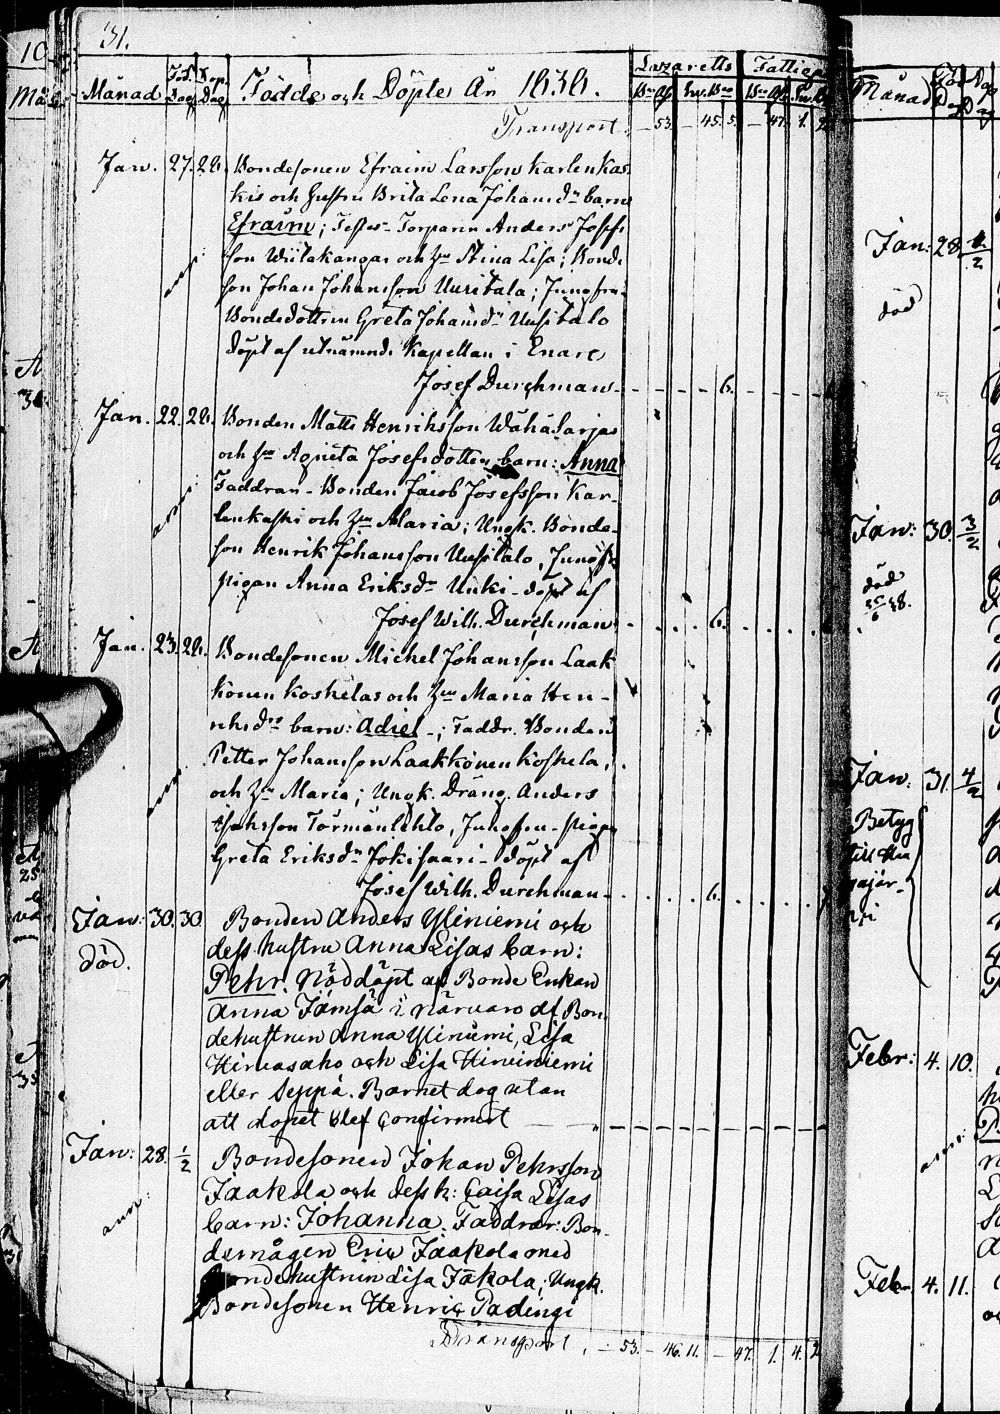 31.
Månad Föd. Dag Döp. Dag Födde och Döpte År 1838. Lazaretts Fattig
Transport - 53. - 45. 5. - 47. 1.
Jan. 27. 28. Bondesonen Efraim Larsson Karlenkas
kis och Hustru Brita Lena Johansdr barn
Efraim; Testes - Torparn Anders Josefs
son Wiitakangas och Hu Stina Lisa; Bonde
son Johan Johansson Uusitalo; Jungfru
Bondedottren Greta Johansdr Uusitalo
döpt af utnämnde Kapellan i Enare
Josef Durchman - - - - 6.
Jan. 22. 28. Bonden Matts Henriksson Wähäsarja
och Hu Agneta Josefsdotters barn: Anna
Faddrar - Bonden Jacob Josefsson Kar-
lenkaski och Hu Maria; Ungk. Bonde-
son Henrik Johansson Uusitalo, Jungfr
pigan Anna Eriksdr Unki - döpt af
Josef Wilh. Durchman . . . . 6. . . . .
Jan. 23. 28. Bondesonen Michel Johansson Laak
könen Koskelas och Hu Maria Hen-
riksdrs barn: Adiel -; Faddr. Bonden
Petter Johansson Laakkönen Koskela,
och Hu Maria; Ungk. Dräng. Anders
Isaksson Törmänlehto, Jungfru - pigan
Greta Eriksdr Jokisaari - döpt af
Josef Wilh. Durchman - . . . . 6. . . . .
Jan: 30. 30. Bonden Anders Yliniemi och
död. dess hustru Anna Lisas barn:
Pehr. Nöddöpt af Bonde Enkan
Anna Jämsä i närvaro af Bon-
dehustrun Anna Yliniemi, Lisa
Hirvasaho och Lisa Hirviniemi
eller Seppä. Barnet dog utan
att dopet blef confirmert
Jan: 28. 1/2 Bondesonen Johan Pehrsson
Jaakola och dess h: Caisa Lisas
barn: Johanna. Faddrar: Bon-
demågen Eric Jaakola med
Bondehustrun Lisa Jäkola; Ungk.
Bondesonen Henric Padengi
Transport, - 53. - 46. 11. - 47. 1. 4. 2
Månad Föd Dag Döp Dag
Jan: 28. 1/2
död
Jan: 30. 3/2
död
25/6 38.
Jan. 31. 4/2
Betyg
Febr: 4. 10.
Febr 4. 11.